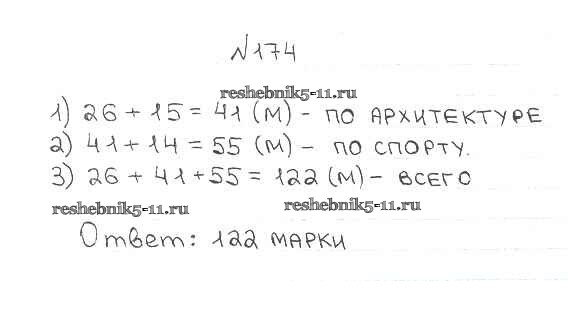 №174
reshebnik5-11.ru
1) 26 + 15 = 41 (м) - по архитектуре
2) 41 + 14 = 55 (м) - по спорту.
3) 26 + 41 + 55 = 122 (м) - всего
reshebnik5-11.ru reshebnik5-11.ru
Ответ: 122 марки